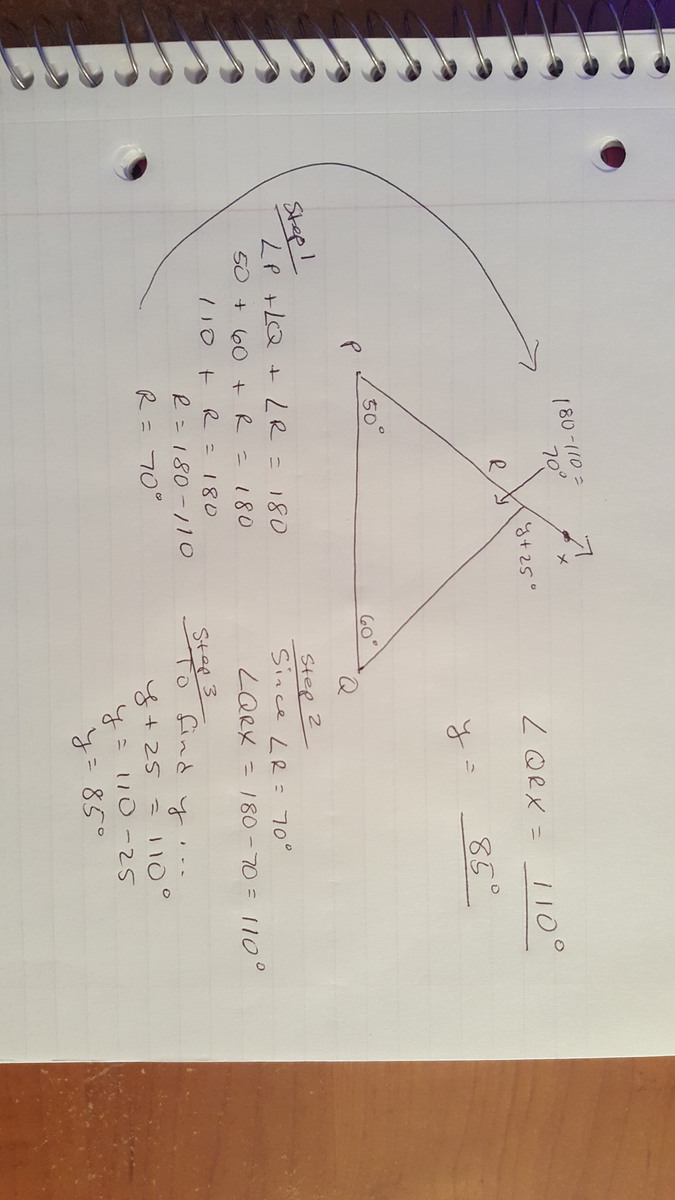 180-110=
70°
R
X
y+25°
P
50°
60°
Q
∠QRX = 110°
y = 85°
Step 1
∠P + ∠Q + ∠R = 180
50 + 60 + R = 180
110 + R = 180
R = 180-110
R = 70°
Step 2
Since ∠R = 70°
∠QRX = 180-70 = 110°
Step 3
To find y...
y + 25 = 110°
y = 110-25
y = 85°